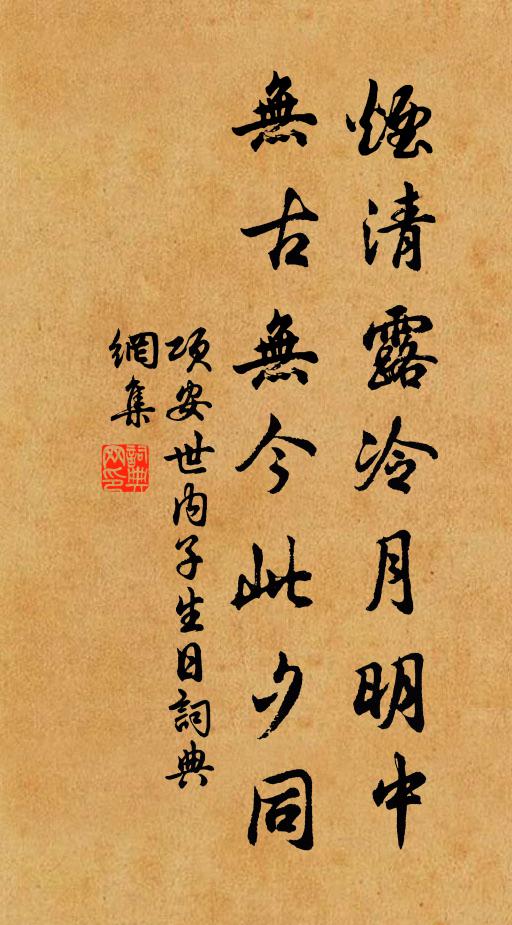 煙清露冷月明中
無古無今此夕同
項安世内子生日詞典
網集
詞典網印